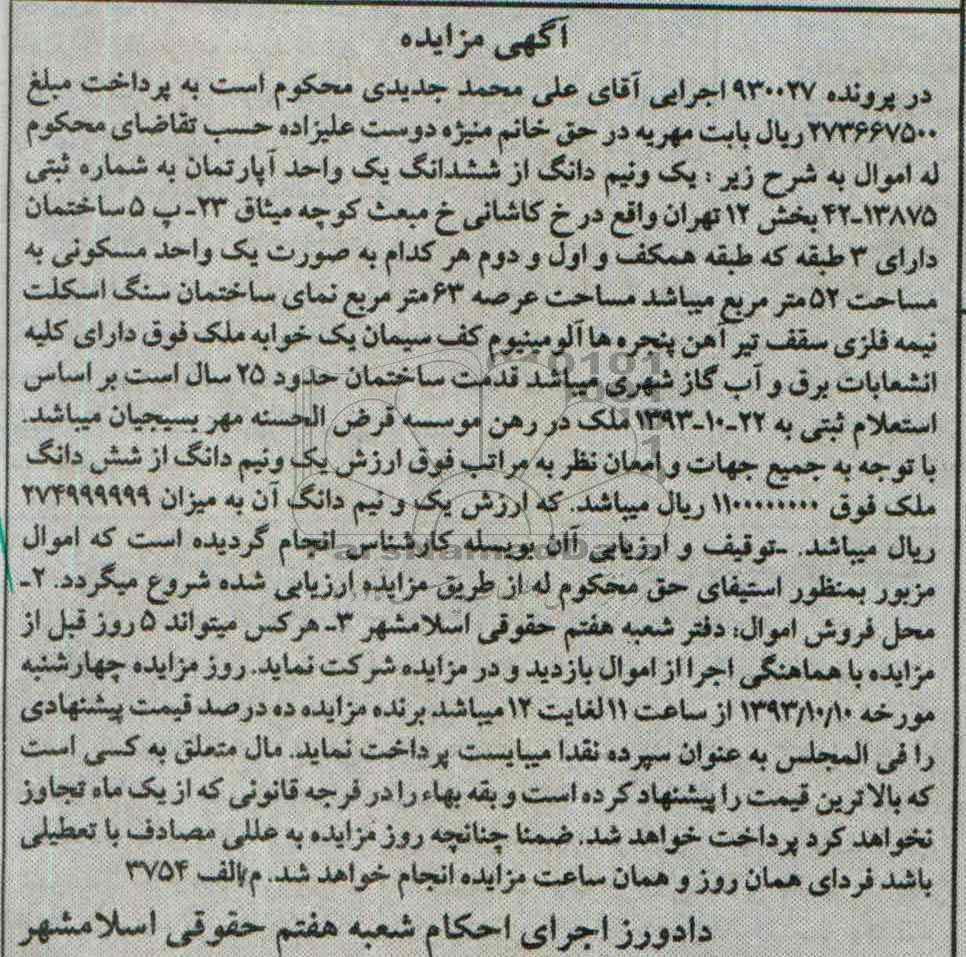 آگهی مزایده
در پرونده ۹۳۰۰۲۷ اجرایی آقای علی محمد جدیدی محکوم است به پرداخت مبلغ
۲۷۳۶۶۷۵۰۰ ریال بابت مهریه در حق خانم منیژه دوست علیزاده حسب تقاضای محکوم
له اموال به شرح زیر : یک ونیم دانگ از ششدانگ یک واحد آپارتمان به شماره ثبتی
۴۲-۱۳۸۷۵ بخش ۱۲ تهران واقع در خ کاشانی خ مبعث کوچه میثاق ۲۳- پ ۵ ساختمان
دارای ۳ طبقه که طبقه همکف و اول و دوم هر کدام به صورت یک واحد مسکونی به
مساحت ۵۲ متر مربع میباشد مساحت عرصه ۶۳ متر مربع نمای ساختمان سنگ اسکلت
نیمه فلزی سقف تیر آهن پنجره ها آلومینیوم کف سیمان یک خوابه ملک فوق دارای کلیه
انشعابات برق و آب گاز شهری میباشد قدمت ساختمان حدود ۲۵ سال است بر اساس
استعلام ثبتی به ۲۲-۱۰-۱۳۹۳ ملک در رهن موسسه قرض الحسنه مهر بسیجیان میباشد.
با توجه به جمیع جهات و امعان نظر به مراتب فوق ارزش یک ونیم دانگ از شش دانگ
ملک فوق ۱۱۰۰۰۰۰۰۰۰ ریال میباشد. که ارزش یک و نیم دانگ آن به میزان ۲۷۴۹۹۹۹۹۹
ریال میباشد. -توقیف و ارزیابی آان بویسله کارشناس انجام گردیده است که اموال
مزبور بمنظور استیفای حق محکوم له از طریق مزایده ارزیابی شده شروع میگردد. ۲-
محل فروش اموال: دفتر شعبه هفتم حقوقی اسلامشهر ۳- هرکس میتواند ۵ روز قبل از
مزایده با هماهنگی اجرا از اموال بازدید و در مزایده شرکت نماید. روز مزایده چهارشنبه
مورخه ۱۳۹۳/۱۰/۱۰ از ساعت ۱۱ لغایت ۱۲ میباشد. برنده مزایده ده درصد قیمت پیشنهادی
را فی المجلس به عنوان سپرده نقدا میبایست پرداخت نماید. مال متعلق به کسی است
که بالاترین قیمت را پیشنهاد کرده است و بقه بهاء را در فرجه قانونی که از یک ماه تجاوز
نخواهد کرد پرداخت خواهد شد. ضمنا چنانچه روز مزایده به عللی مصادف با تعطیلی
باشد فردای همان روز و همان ساعت مزایده انجام خواهد شد. م/الف ۳۷۵۴
دادورز اجرای احکام شعبه هفتم حقوقی اسلامشهر